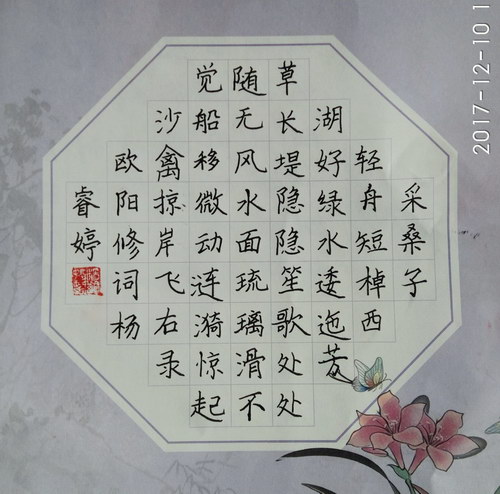 采桑子
轻舟短棹西
湖好绿水逶迤芳
草长堤隐隐笙歌处处
随无风水面琉璃滑不
觉船移微动涟漪惊起
沙禽掠岸飞右录
欧阳修词杨
睿婷
2017-12-10 1